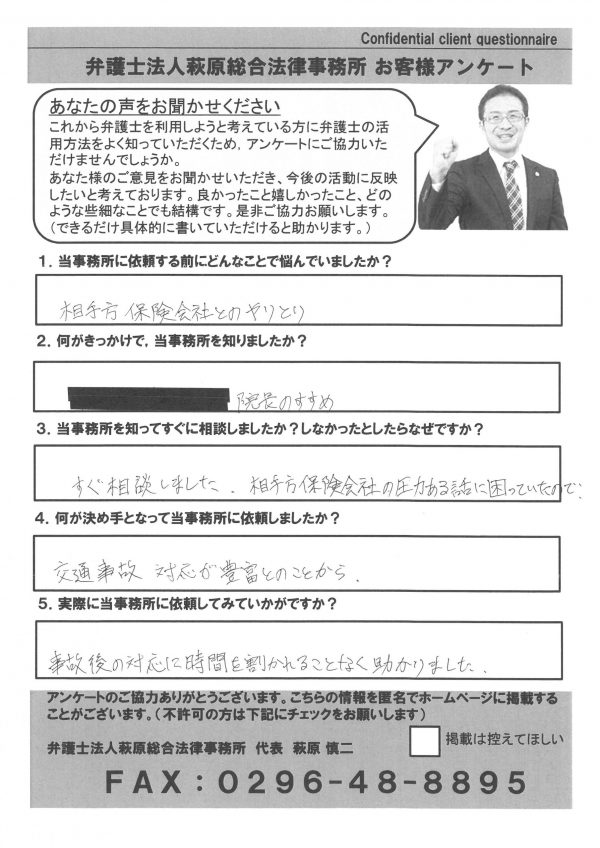 Confidential client questionnaire
弁護士法人萩原総合法律事務所 お客様アンケート
あなたの声をお聞かせください
これから弁護士を利用しようと考えている方に弁護士の活
用方法をよく知っていただくため，アンケートにご協力いた
だけませんでしょうか。
あなた様のご意見をお聞かせいただき、今後の活動に反映
したいと考えております。良かったこと嬉しかったこと、どの
ような些細なことでも結構です。是非ご協力お願いします。
（できるだけ具体的に書いていただけると助かります。）
1．当事務所に依頼する前にどんなことで悩んでいましたか？
相手方保険会社とのやりとり
2．何がきっかけで，当事務所を知りましたか？
院長のすすめ
3．当事務所を知ってすぐに相談しましたか？しなかったとしたらなぜですか？
すぐ相談しました．相手方保険会社の圧力ある話に困っていたので．
4．何が決め手となって当事務所に依頼しましたか？
交通事故 対応が豊富とのことから．
5．実際に当事務所に依頼してみていかがですか？
事故後の対応に時間を割かれることなく助かりました．
アンケートのご協力ありがとうございます。こちらの情報を匿名でホームページに掲載する
ことがございます。（不許可の方は下記にチェックをお願いします）
弁護士法人萩原総合法律事務所 代表 萩原 慎二
掲載は控えてほしい
FAX：0296-48-8895